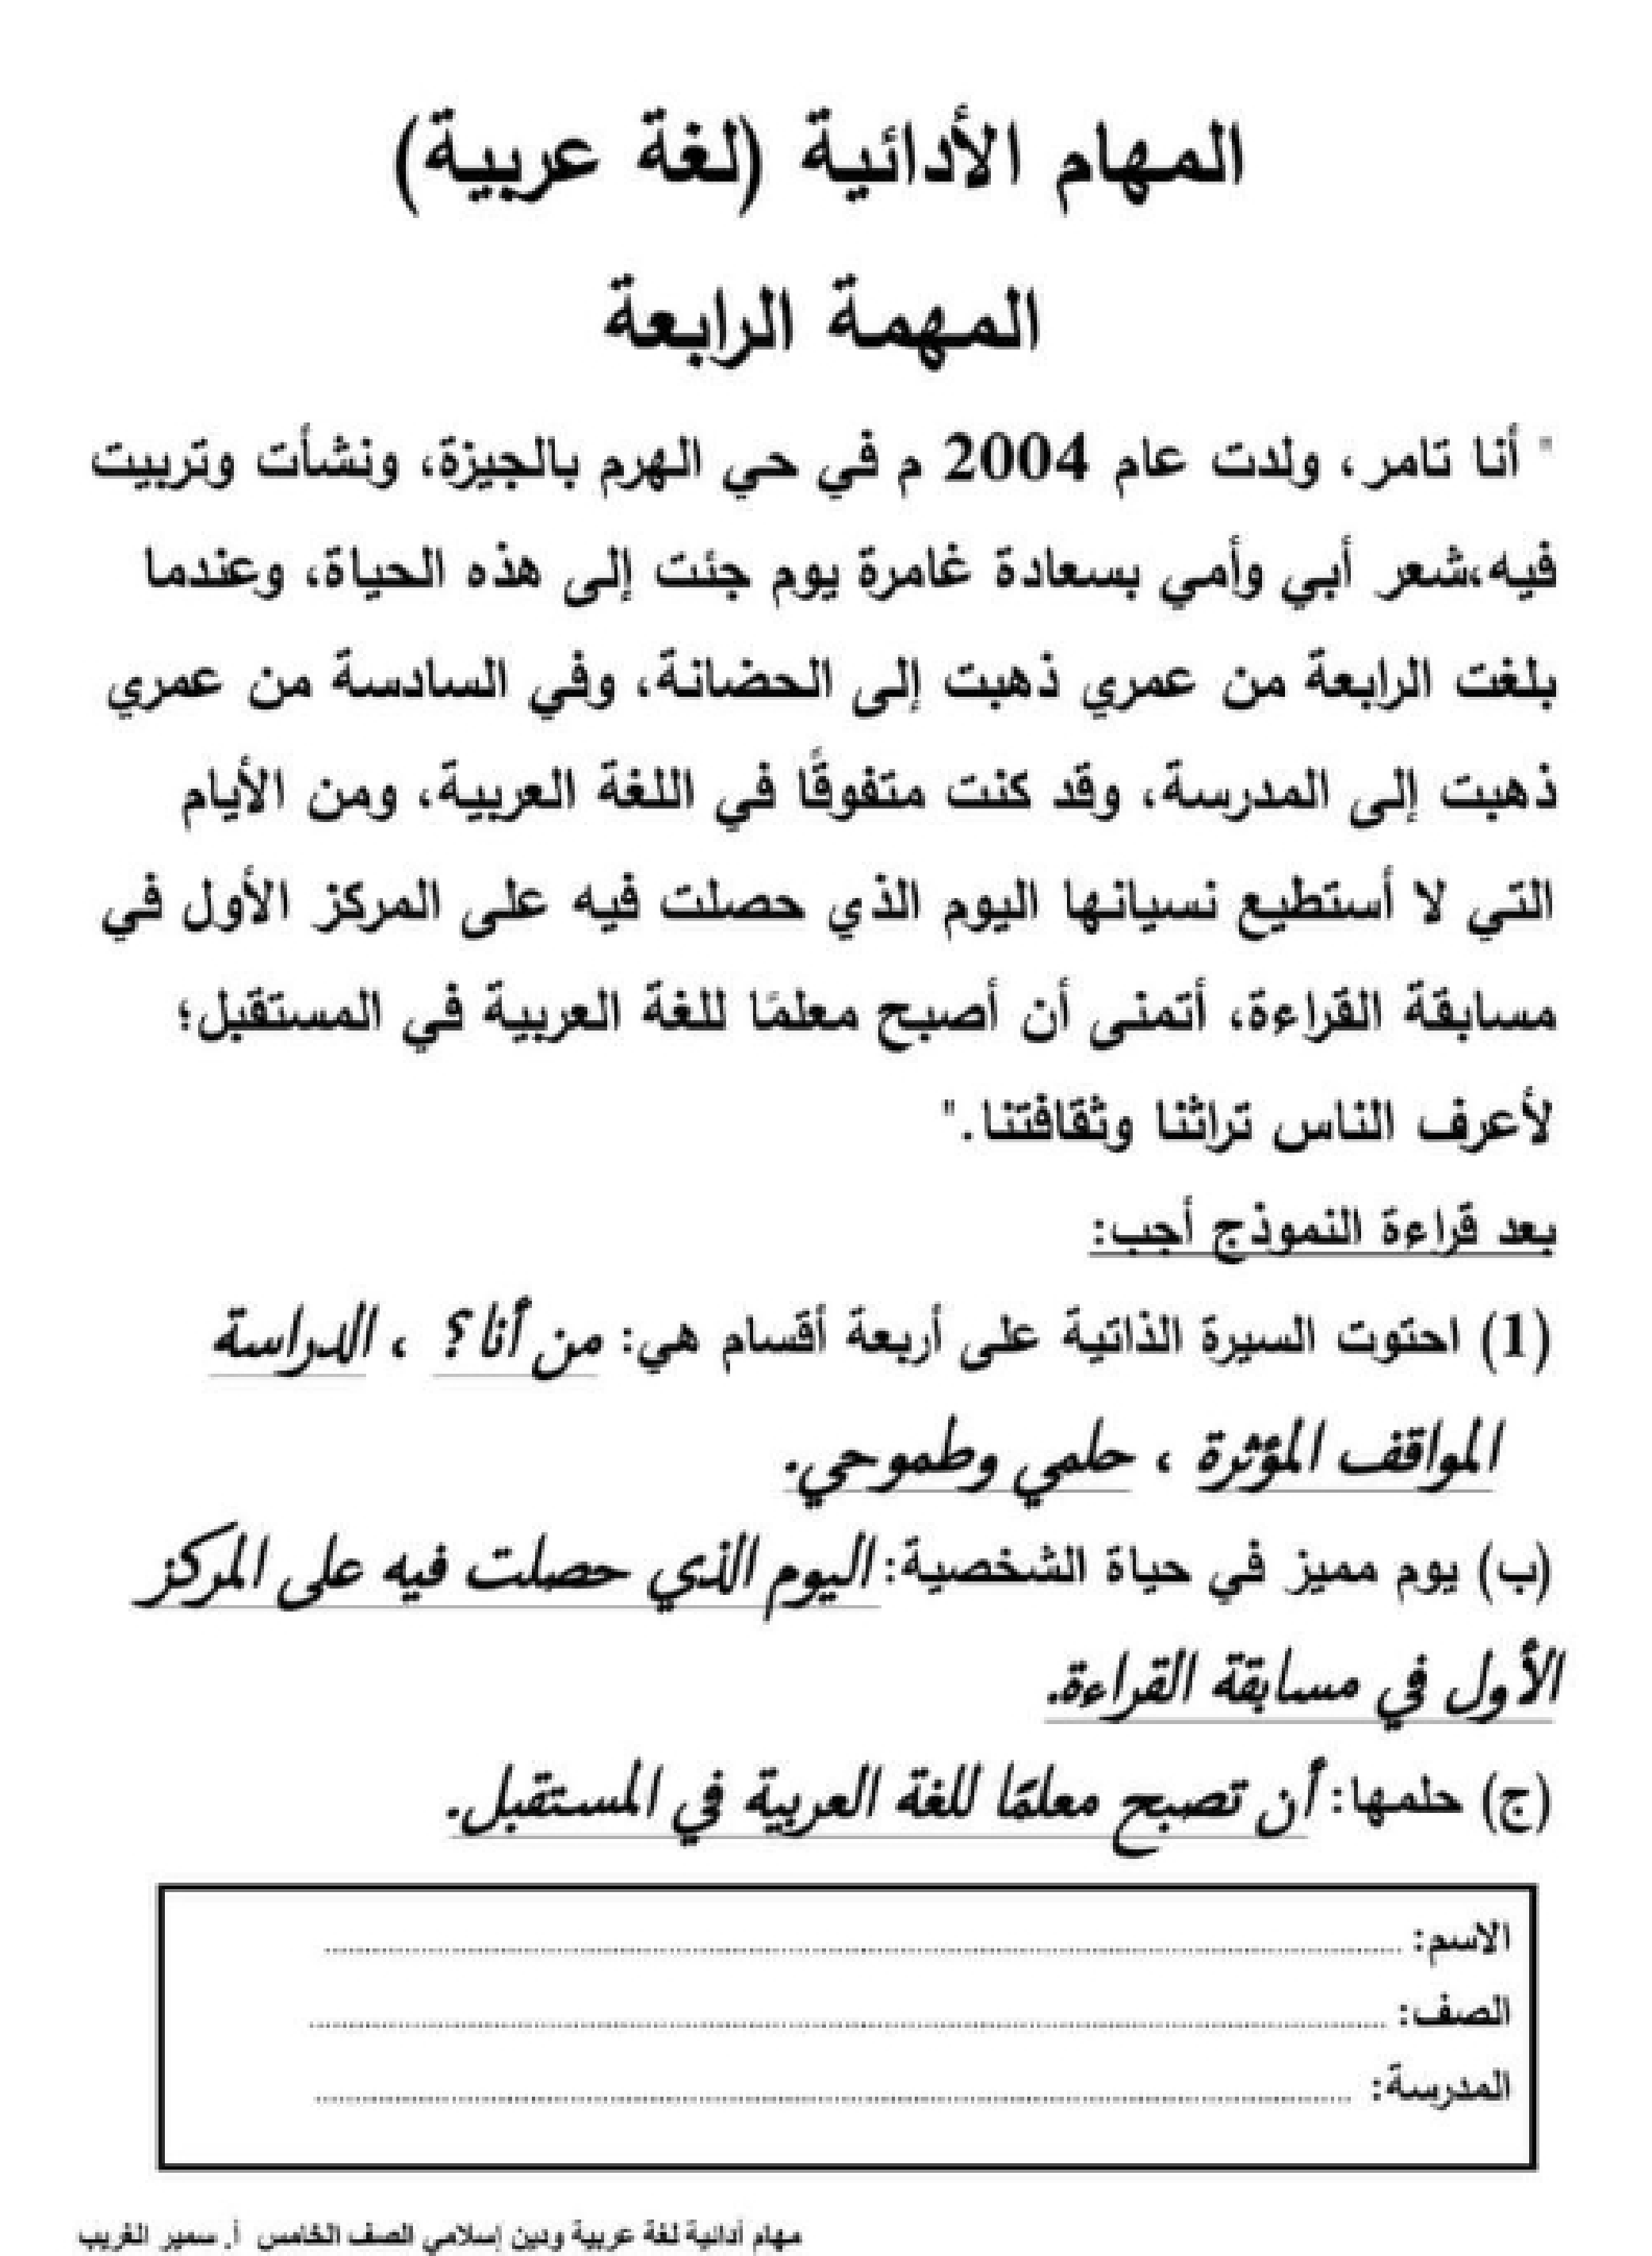 المهام الأدائية (لغة عربية)
المهمة الرابعة
" أنا تامر، ولدت عام 2004 م في حي الهرم بالجيزة، ونشأت وتربيت
فيه،شعر أبي وأمي بسعادة غامرة يوم جئت إلى هذه الحياة، وعندما
بلغت الرابعة من عمري ذهبت إلى الحضانة، وفي السادسة من عمري
ذهبت إلى المدرسة، وقد كنت متفوقًا في اللغة العربية، ومن الأيام
التي لا أستطيع نسيانها اليوم الذي حصلت فيه على المركز الأول في
مسابقة القراءة، أتمنى أن أصبح معلمًا للغة العربية في المستقبل؛
لأعرف الناس تراثنا وثقافتنا."
بعد قراءة النموذج أجب:
(1) احتوت السيرة الذاتية على أربعة أقسام هي: من أنا؟ ، الدراسة
المواقف المؤثرة ، حلمي وطموحي.
(ب) يوم مميز في حياة الشخصية: اليوم الذي حصلت فيه على المركز
الأول في مسابقة القراءة.
(ج) حلمها: أن تصبح معلمًا للغة العربية في المستقبل.
الاسم: ........................................
الصف: ........................................
المدرسة: ........................................
مهام أدائية لغة عربية ودين إسلامي الصف الخامس أ. سمير الغريب